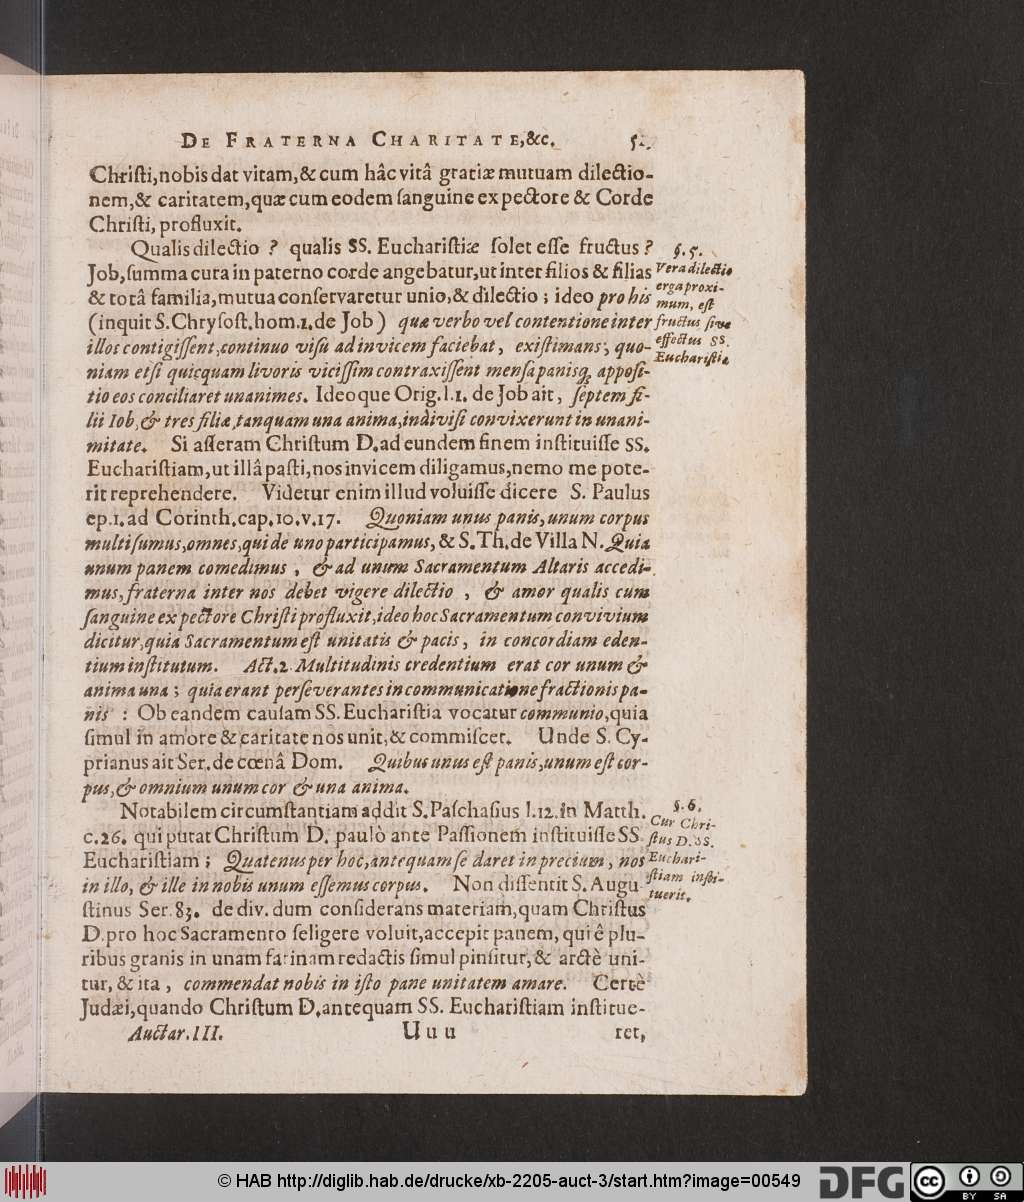 DE FRATERNA CHARITATE,&c.
Chriſti,nobis dat vitam,&cum hâc vitâ gratiæ mutuam dilectio-
nem,& caritatem,quæ cum eodem ſanguine ex pectore & Corde
Chriſti, profluxit.
Qualis dilectio ? qualis SS. Euchariſtiæ ſolet eſſe fructus ?
Job,ſumma cura in paterno corde angebatur,ut inter filios & filias
& totâ familia,mutua conſervaretur unio,& dilectio ; ideo pro his
(inquit S.Chryſoſt.hom.1.de Job) quæ verbo vel contentione inter
illos contigiſſent,continuo viſu ad invicem faciebat, exiſtimans, quo-
niam etſi quicquam livoris viciſſim contraxiſſent menſa panisq; appoſi-
tio eos conciliaret unanimes. Ideoque Orig.l.1. de Job ait, ſeptem fi-
lii Iob,& tres filiæ,tanquam una anima,indiviſi convixerunt in unani-
mitate. Si aſſeram Chriſtum D.ad eundem finem inſtituiſſe SS.
Euchariſtiam,ut illâ paſti,nos invicem diligamus,nemo me pote-
rit reprehendere. Videtur enim illud voluiſſe dicere S. Paulus
ep.1.ad Corinth.cap.10.v.17. Quoniam unus panis,unum corpus
multi ſumus,omnes,qui de uno participamus, & S.Th.de Villa N. Quia
unum panem comedimus , & ad unum Sacramentum Altaris accedi-
mus,fraterna inter nos debet vigere dilectio , & amor qualis cum
ſanguine ex pectore Chriſti profluxit,ideo hoc Sacramentum convivium
dicitur,quia Sacramentum eſt unitatis & pacis, in concordiam eden-
tium inſtitutum. Act.2. Multitudinis credentium erat cor unum &
anima una ; quia erant perſeverantes in communicatione fractionis pa-
nis : Ob eandem cauſam SS.Euchariſtia vocatur communio,quia
ſimul in amore & caritate nos unit,& commiſcet. Unde S. Cy-
prianus ait Ser.de cœnâ Dom. Quibus unus eſt panis,unum eſt cor-
pus,& omnium unum cor & una anima.
Notabilem circumſtantiam addit S.Paſchaſius l.12.in Matth.
c.26. qui putat Chriſtum D. paulò ante Paſſionem inſtituiſſe SS.
Euchariſtiam ; Quatenus per hoc,antequam ſe daret in precium, nos
in illo, & ille in nobis unum eſſemus corpus. Non diſſentit S.Augu
ſtinus Ser.83. de div. dum conſiderans materiam,quam Chriſtus
D.pro hoc Sacramento ſeligere voluit,accepit panem, qui ê plu-
ribus granis in unam farinam redactis ſimul pinſitur,& arctè uni-
tur, & ita , commendat nobis in iſto pane unitatem amare. Certè
Judæi,quando Chriſtum D.antequam SS. Euchariſtiam inſtitue-
Auctar.III. Uuu ret,
§.5.
Vera dilectio
erga proxi-
mum, eſt
fructus ſive
effectus SS.
Euchariſtiæ
§.6.
Cur Chri-
ſtus D. SS.
Euchari-
ſtiam inſti-
tuerit.
© HAB http://diglib.hab.de/drucke/xb-2205-auct-3/start.htm?image=00549
DFG
cc
BY SA